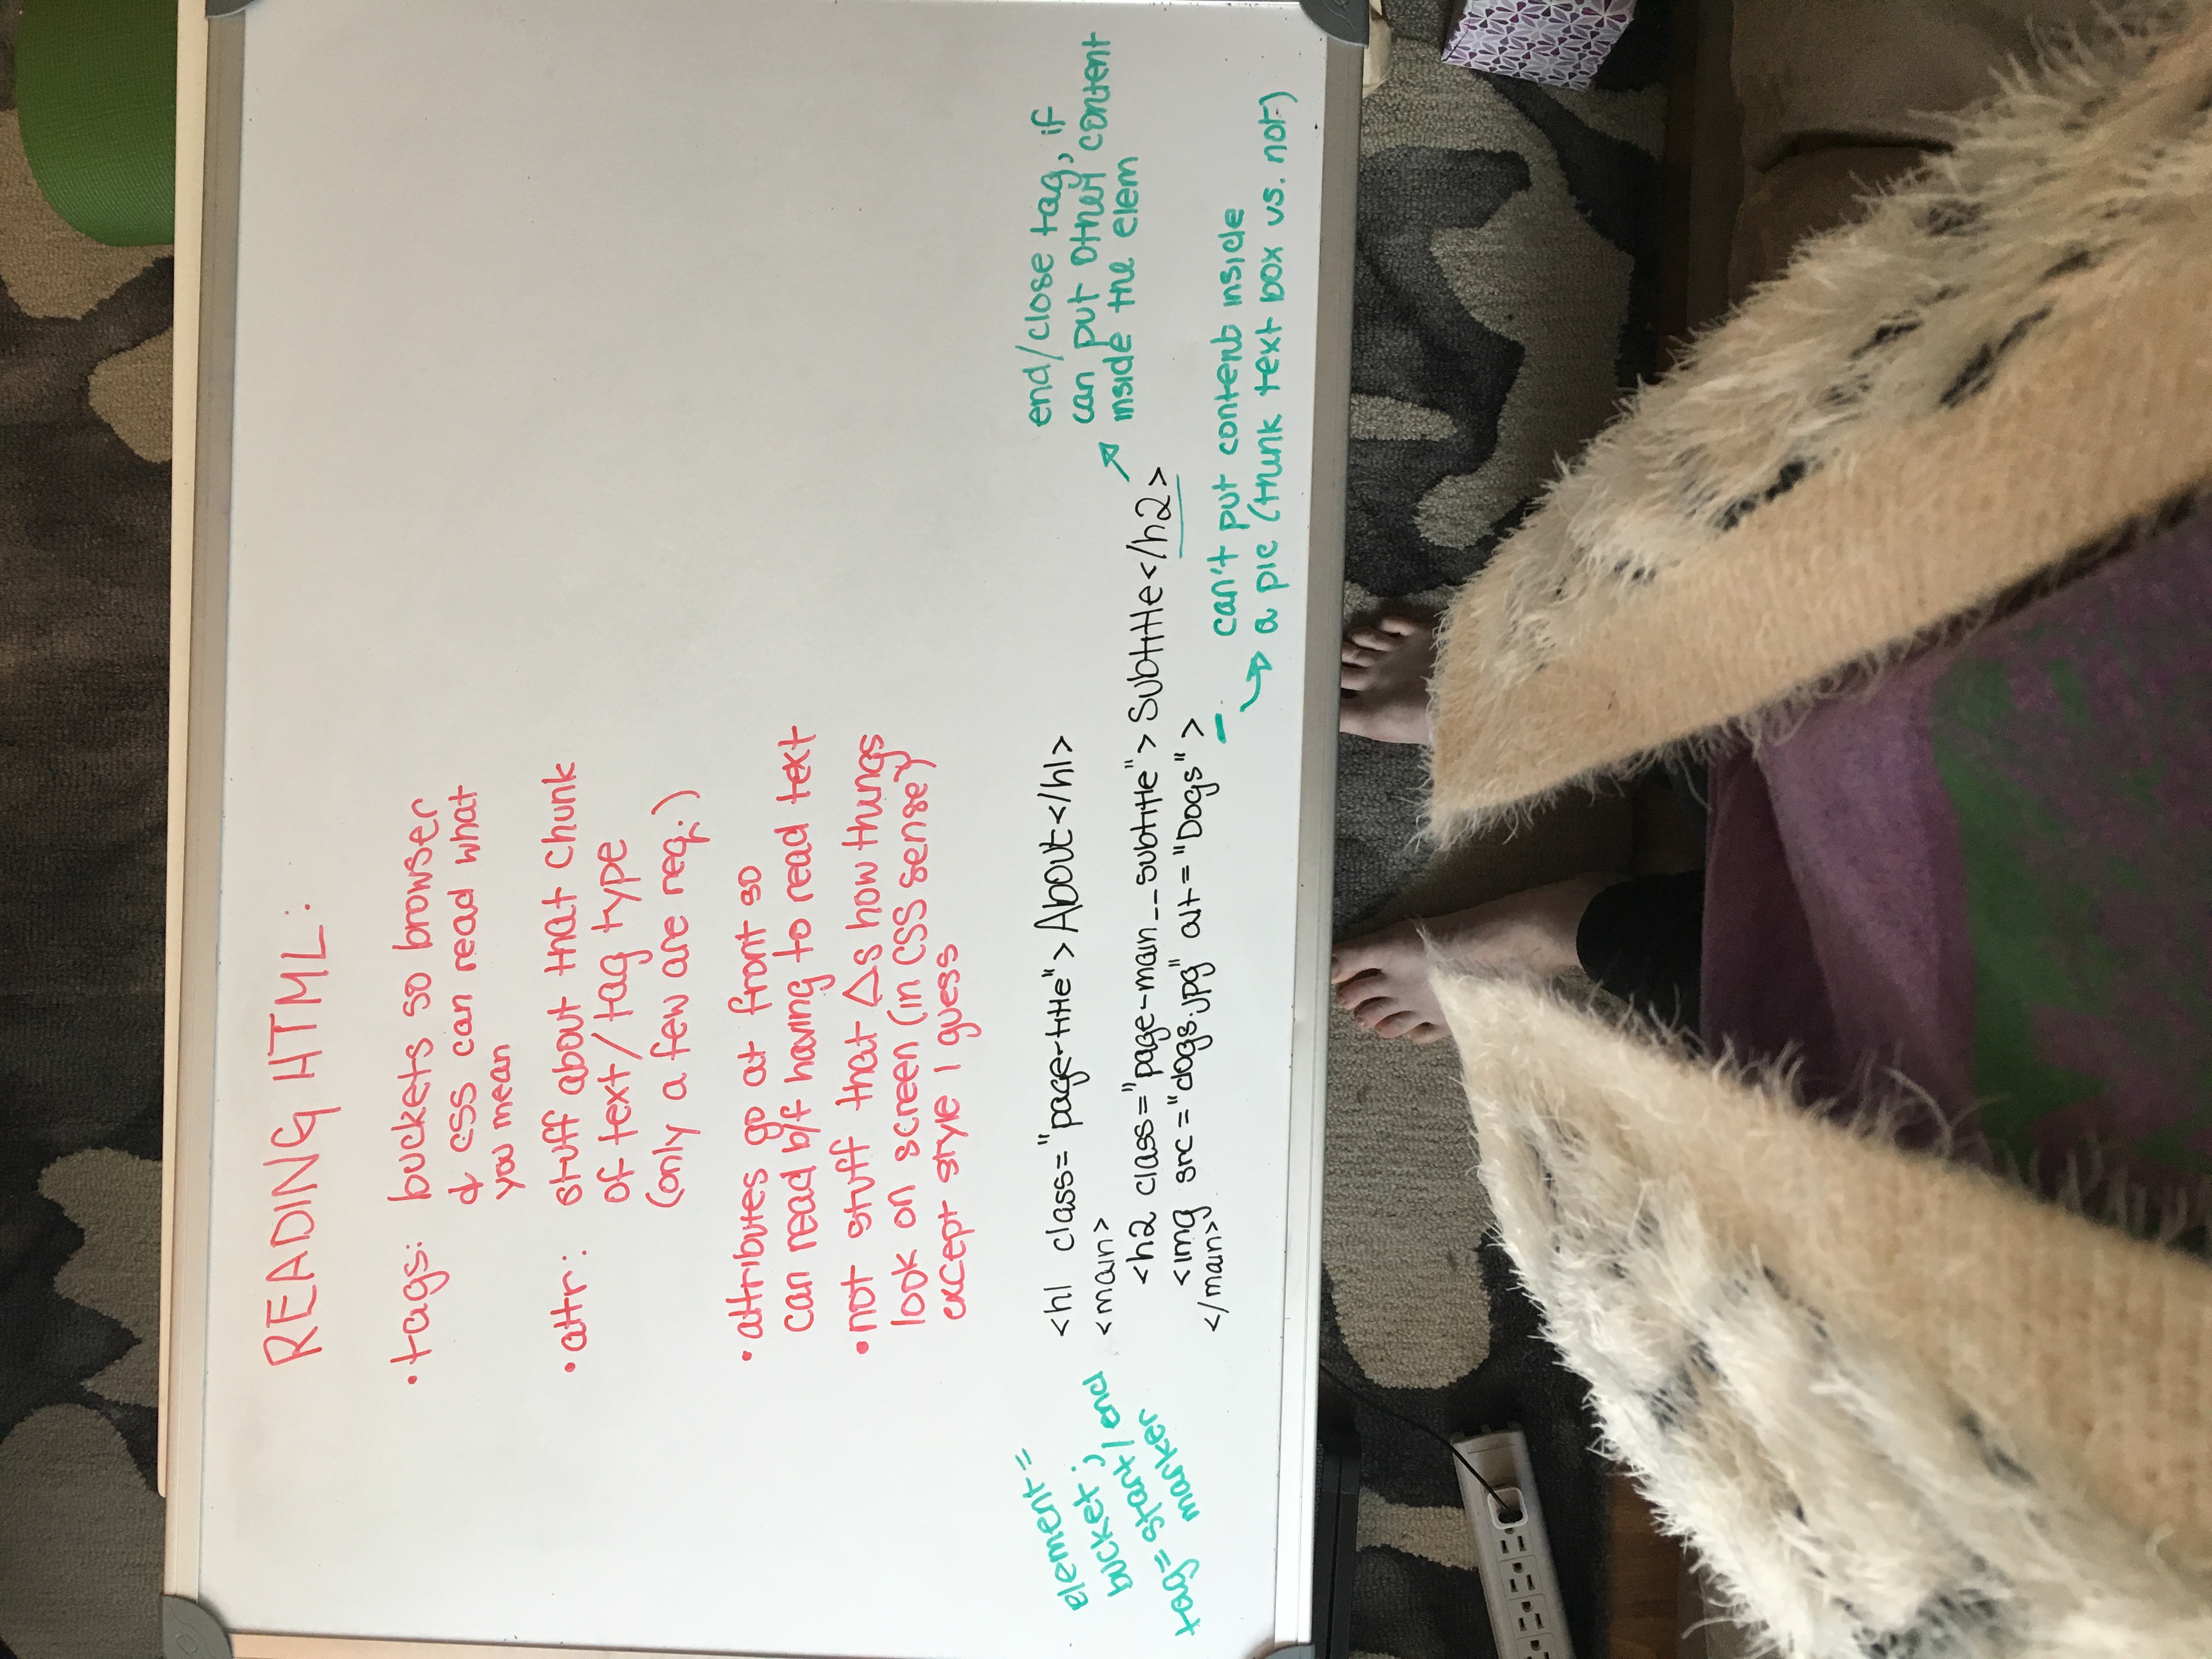 READING HTML:
• tags: buckets so browser
& CSS can read what
you mean
• attr: stuff about that chunk
of text/tag type
(only a few are req.)
• attributes go at front so
can read b/f having to read text
• not stuff that Δs how things
look on screen (in CSS sense)
except style I guess
element =
bucket;
tag = start/end
marker
<h1 class="page-title">About</h1>
<main>
<h2 class="page-main__subtitle">Subtitle</h2>
<img src="dogs.jpg" alt="Dogs">
</main>
end/close tag, if
can put other content
inside the elem
can't put content inside
a pic (think text box vs. not)